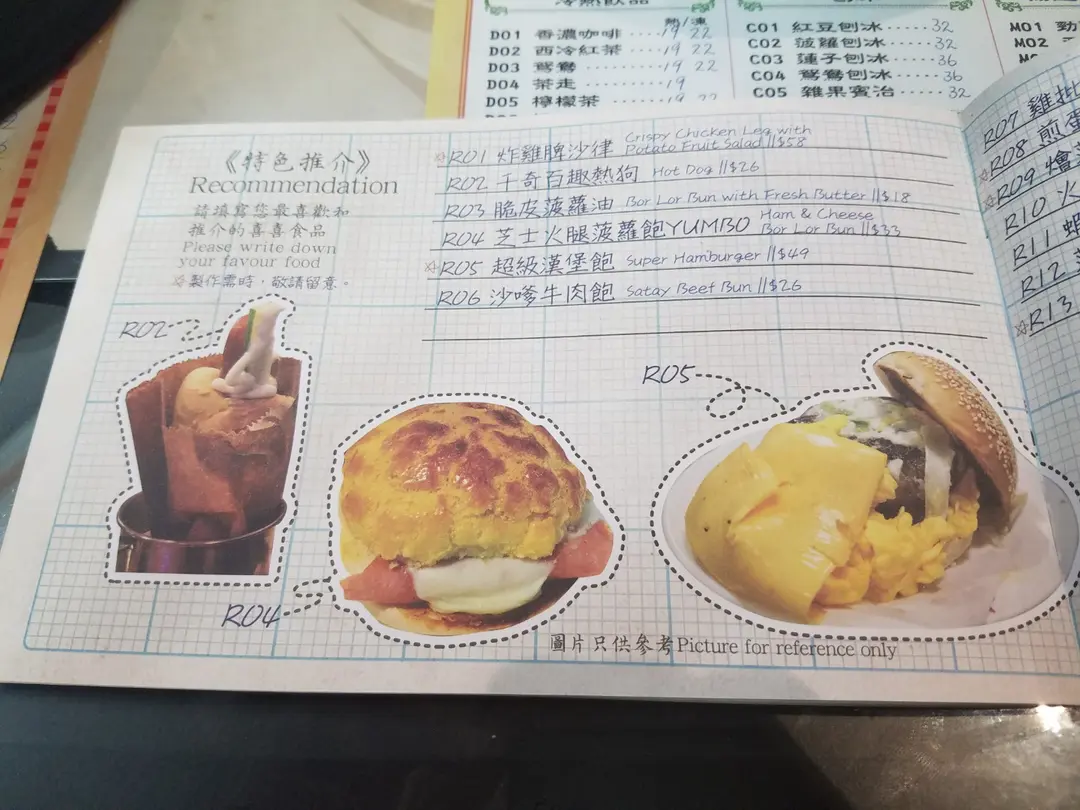 冷熱飲品
熱/凍
D01 香濃咖啡‥‥19 22
D02 西冷紅茶‥‥19 22
D03 鴛鴦‥‥‥‥‥19 22
D04 茶走‥‥‥‥‥19
D05 檸檬茶‥‥‥19 22
C01 紅豆刨冰‥‥‥32
C02 菠蘿刨冰‥‥‥32
C03 蓮子刨冰‥‥‥36
C04 鴛鴦刨冰‥‥‥36
C05 雜果賓治‥‥‥32
M01 勁
M02
《特色推介》
Recommendation
請填寫您最喜歡和
推介的喜喜食品
Please write down
your favour food
☆製作需時，敬請留意。
☆R01 炸雞脾沙律 Crispy Chicken Leg with Potato Fruit Salad //$58
R02 千奇百趣熱狗 Hot Dog //$26
R03 脆皮菠蘿油 Bor Lor Bun with Fresh Butter //$18
R04 芝士火腿菠蘿飽YUMBO Ham & Cheese Bor Lor Bun //$33
☆R05 超級漢堡飽 Super Hamburger //$49
R06 沙嗲牛肉飽 Satay Beef Bun //$26
R02
R04
R05
圖片只供參考Picture for reference only
R07 雞批
☆R08 煎蛋
☆R09 燴
R10 火
R11 蝦
R12
☆R13